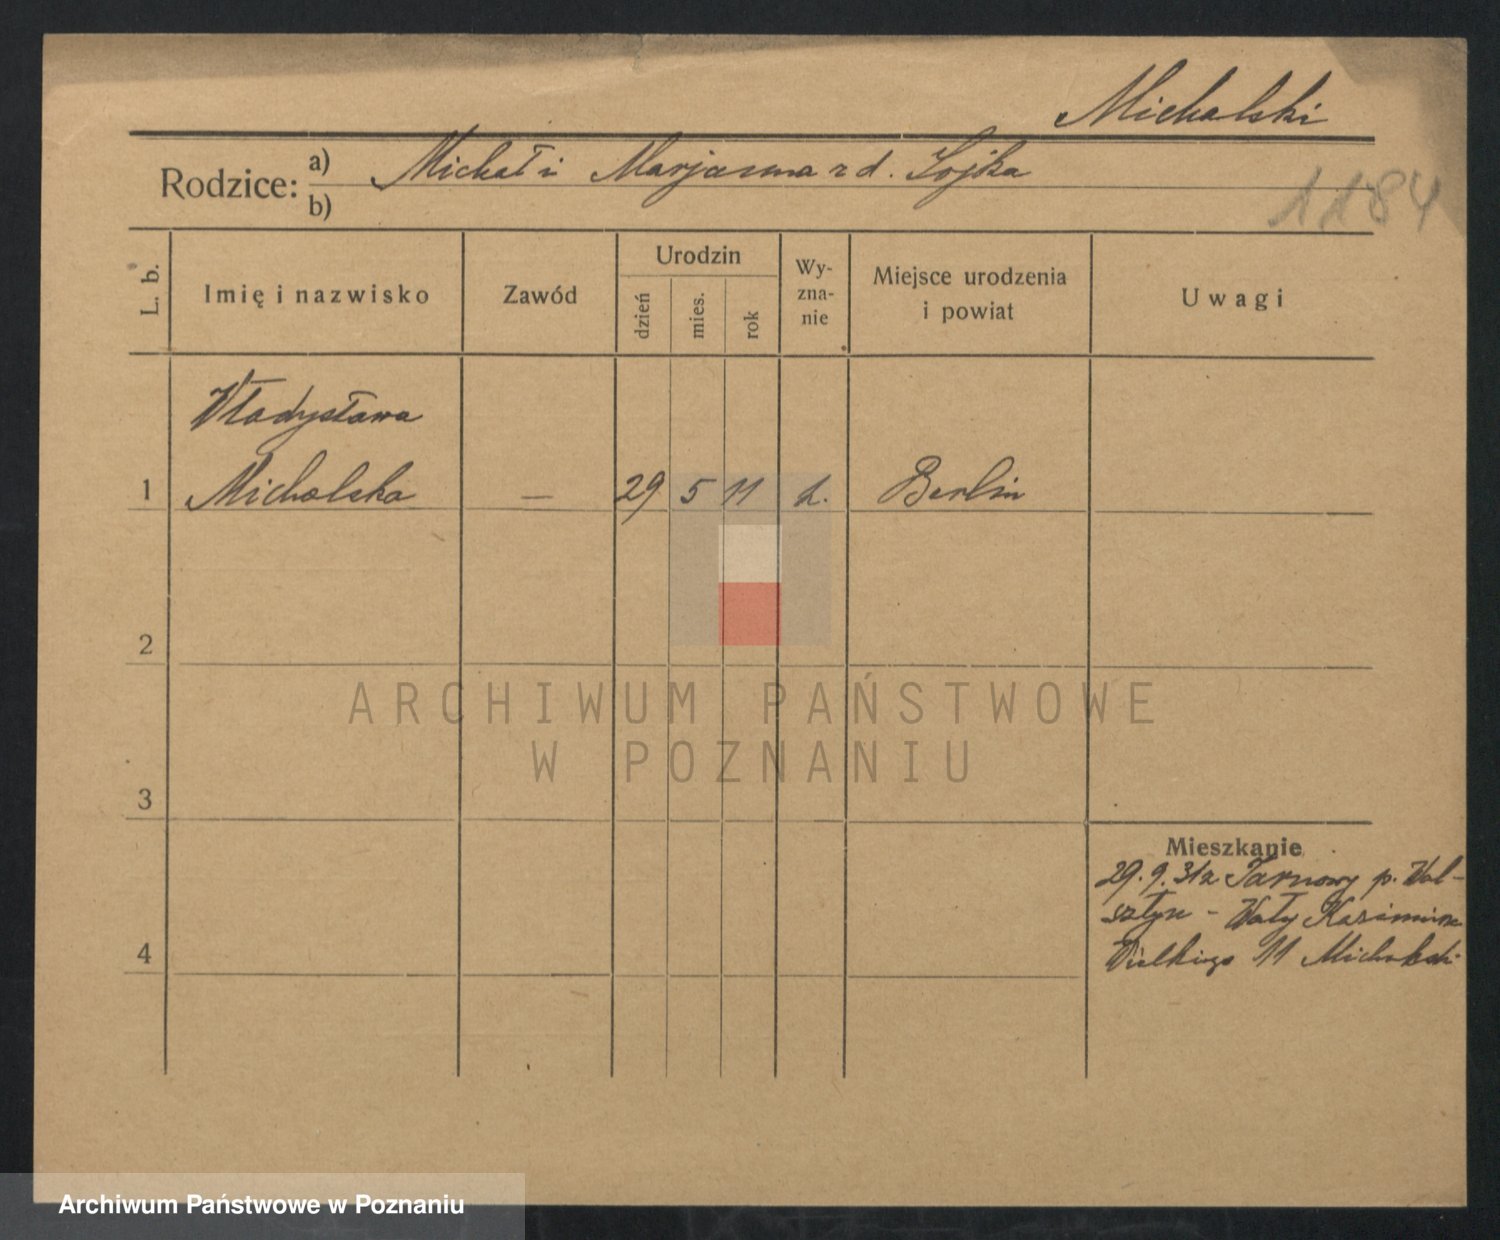 Michalski
Rodzice: a) Michał i Marjanna z d. Sojka
b)
1184
L. b.
Imię i nazwisko
Zawód
Urodzin
dzień
mies.
rok
Wy-
zna-
nie
Miejsce urodzenia
i powiat
Uwagi
Władysława
1 Michalska — 29 5 11 k. Berlin
2
ARCHIWUM PAŃSTWOWE
W POZNANIU
3
Mieszkanie
29.9.31 z Tarnowy p. Wol-
sztyn - Wały Kazimierza
4 Wielkiego 11 Michalski
Archiwum Państwowe w Poznaniu